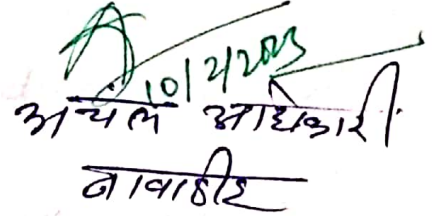 10/2/2023
अंचल अधिकारी
नावाडीह